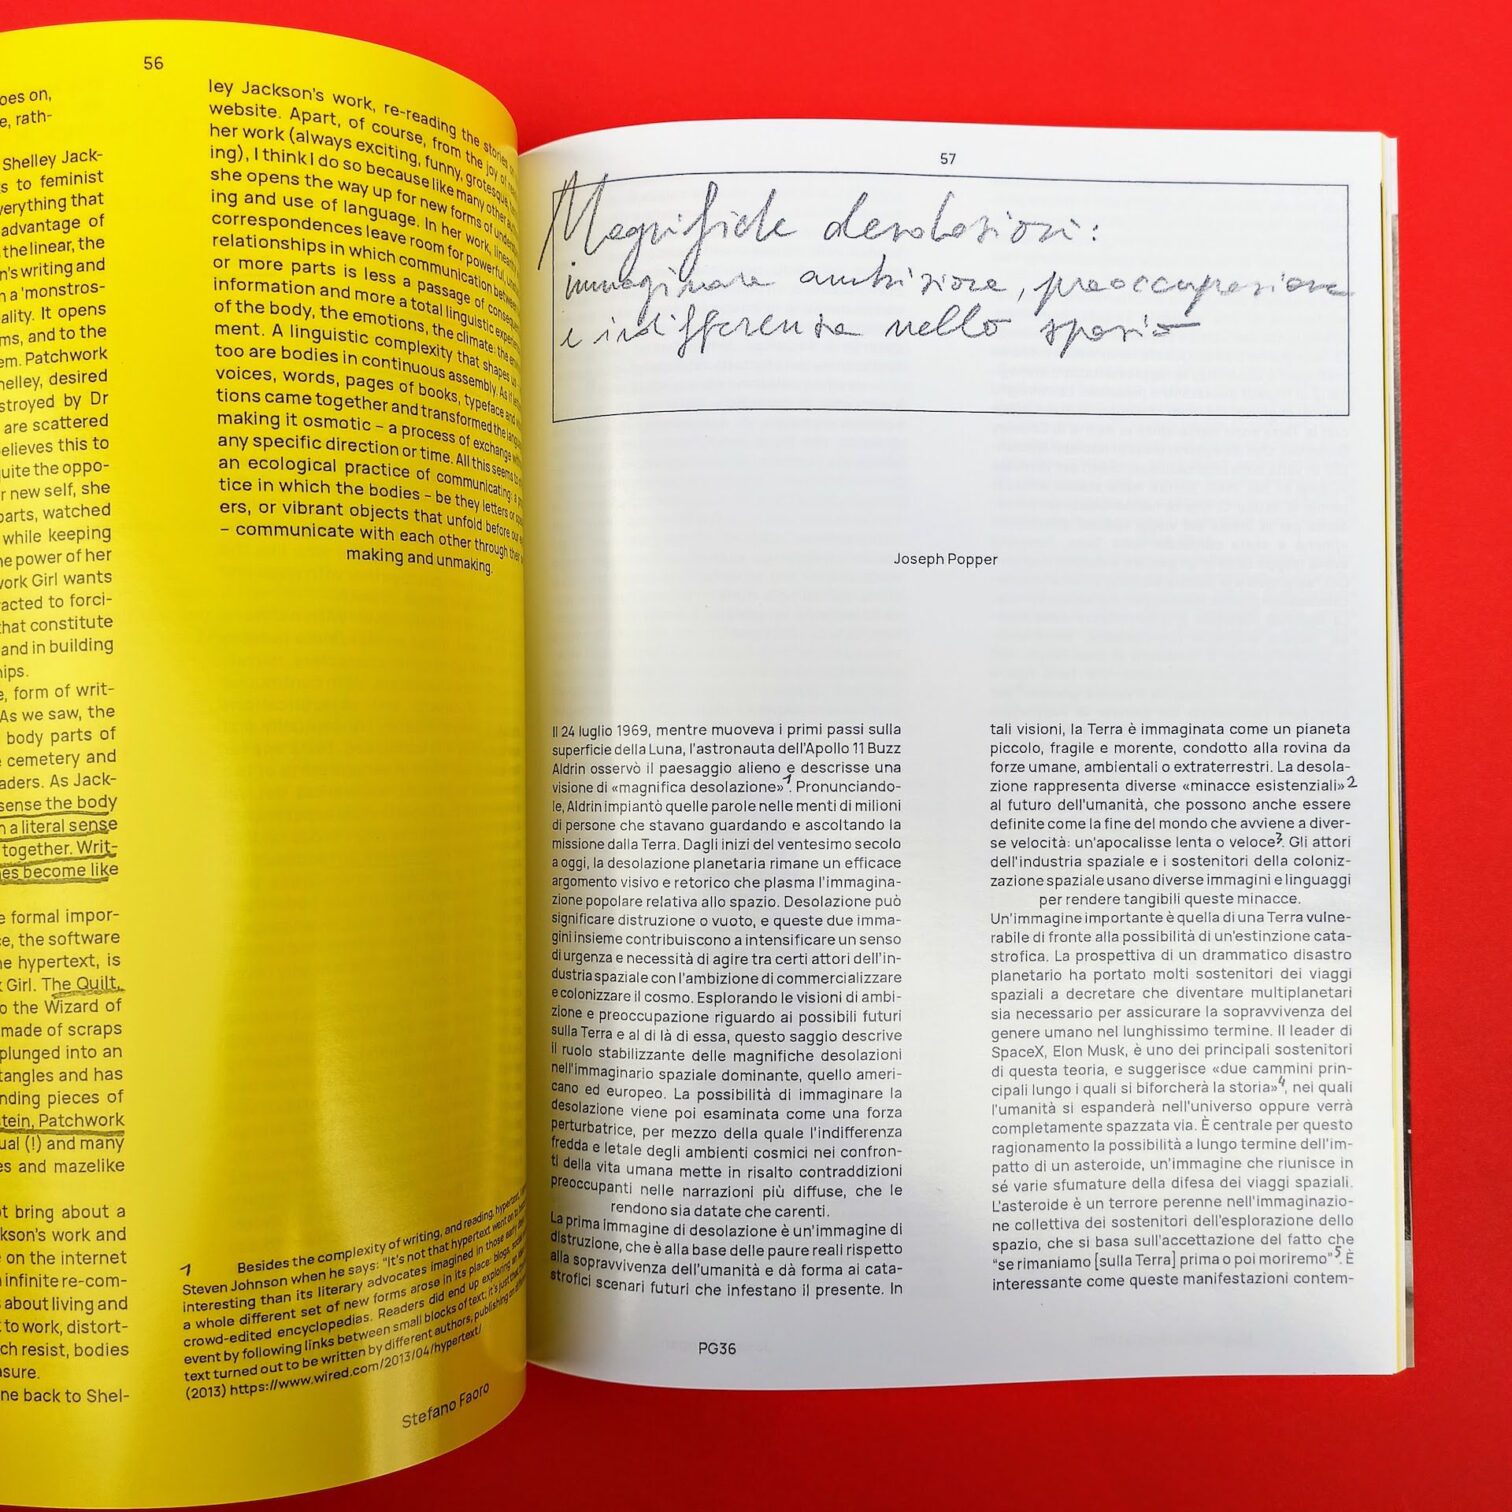 56
oes on,
e, rath-
Shelley Jack-
s to feminist
verything that
advantage of
the linear, the
n's writing and
n a 'monstros-
ality. It opens
ms, and to the
em. Patchwork
helley, desired
stroyed by Dr
are scattered
elieves this to
uite the oppo-
r new self, she
parts, watched
while keeping
he power of her
work Girl wants
racted to forci-
that constitute
and in building
hips.
e, form of writ-
As we saw, the
body parts of
e cemetery and
eaders. As Jack-
sense the body
n a literal sense
together. Writ-
nes become like
e formal impor-
ce, the software
he hypertext, is
k Girl. The Quilt,
o the Wizard of
made of scraps
plunged into an
tangles and has
nding pieces of
tein, Patchwork
ual (!) and many
es and mazelike
ot bring about a
kson's work and
e on the internet
n infinite re-com-
s about living and
t to work, distort-
ch resist, bodies
asure.
ne back to Shel-
ley Jackson's work, re-reading the stories
website. Apart, of course, from the joy of
her work (always exciting, funny, grotesque,
ing), I think I do so because like many other
she opens the way up for new forms of
ing and use of language. In her work,
correspondences leave room for powerful,
relationships in which communication between
or more parts is less a passage of
information and more a total linguistic
of the body, the emotions, the climate: the
ment. A linguistic complexity that shapes
too are bodies in continuous assembly. As if
voices, words, pages of books, typeface and
tions came together and transformed the
making it osmotic – a process of exchange
any specific direction or time. All this seems
an ecological practice of communicating: a
tice in which the bodies – be they letters or
ers, or vibrant objects that unfold before our
– communicate with each other through their
making and unmaking.
1 Besides the complexity of writing, and reading, hypertext,
Steven Johnson when he says: "It's not that hypertext went on to
interesting than its literary advocates imagined in those early
a whole different set of new forms arose in its place: blogs, social
crowd-edited encyclopedias. Readers did end up exploring an
event by following links between small blocks of text; it's just that
text turned out to be written by different authors, publishing on
(2013) https://www.wired.com/2013/04/hypertext/
Stefano Faoro
57
Magnifiche desolazioni:
immaginare ambizione, preoccupazione
e indifferenza nello spazio
Joseph Popper
Il 24 luglio 1969, mentre muoveva i primi passi sulla
superficie della Luna, l'astronauta dell'Apollo 11 Buzz
Aldrin osservò il paesaggio alieno e descrisse una
visione di «magnifica desolazione»1. Pronunciando-
le, Aldrin impiantò quelle parole nelle menti di milioni
di persone che stavano guardando e ascoltando la
missione dalla Terra. Dagli inizi del ventesimo secolo
a oggi, la desolazione planetaria rimane un efficace
argomento visivo e retorico che plasma l'immagina-
zione popolare relativa allo spazio. Desolazione può
significare distruzione o vuoto, e queste due imma-
gini insieme contribuiscono a intensificare un senso
di urgenza e necessità di agire tra certi attori dell'in-
dustria spaziale con l'ambizione di commercializzare
e colonizzare il cosmo. Esplorando le visioni di ambi-
zione e preoccupazione riguardo ai possibili futuri
sulla Terra e al di là di essa, questo saggio descrive
il ruolo stabilizzante delle magnifiche desolazioni
nell'immaginario spaziale dominante, quello ameri-
cano ed europeo. La possibilità di immaginare la
desolazione viene poi esaminata come una forza
perturbatrice, per mezzo della quale l'indifferenza
fredda e letale degli ambienti cosmici nei confron-
ti della vita umana mette in risalto contraddizioni
preoccupanti nelle narrazioni più diffuse, che le
rendono sia datate che carenti.
La prima immagine di desolazione è un'immagine di
distruzione, che è alla base delle paure reali rispetto
alla sopravvivenza dell'umanità e dà forma ai cata-
strofici scenari futuri che infestano il presente. In
tali visioni, la Terra è immaginata come un pianeta
piccolo, fragile e morente, condotto alla rovina da
forze umane, ambientali o extraterrestri. La desola-
zione rappresenta diverse «minacce esistenziali»2
al futuro dell'umanità, che possono anche essere
definite come la fine del mondo che avviene a diver-
se velocità: un'apocalisse lenta o veloce3. Gli attori
dell'industria spaziale e i sostenitori della coloniz-
zazione spaziale usano diverse immagini e linguaggi
per rendere tangibili queste minacce.
Un'immagine importante è quella di una Terra vulne-
rabile di fronte alla possibilità di un'estinzione cata-
strofica. La prospettiva di un drammatico disastro
planetario ha portato molti sostenitori dei viaggi
spaziali a decretare che diventare multiplanetari
sia necessario per assicurare la sopravvivenza del
genere umano nel lunghissimo termine. Il leader di
SpaceX, Elon Musk, è uno dei principali sostenitori
di questa teoria, e suggerisce «due cammini prin-
cipali lungo i quali si biforcherà la storia»4, nei quali
l'umanità si espanderà nell'universo oppure verrà
completamente spazzata via. È centrale per questo
ragionamento la possibilità a lungo termine dell'im-
patto di un asteroide, un'immagine che riunisce in
sé varie sfumature della difesa dei viaggi spaziali.
L'asteroide è un terrore perenne nell'immaginazio-
ne collettiva dei sostenitori dell'esplorazione dello
spazio, che si basa sull'accettazione del fatto che
"se rimaniamo [sulla Terra] prima o poi moriremo"5. È
interessante come queste manifestazioni contem-
PG36